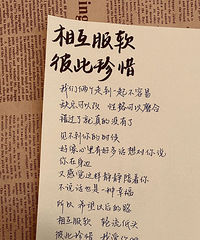 相互服软
彼此珍惜
我们俩个走到一起不容易
缺点可以改 性格可以磨合
错过了就真的没有了
见不到你的时候
好像心里有好多话想对你说
你在身边
又感觉这样静静陪着你
不说话也是一种幸福
所以 希望以后的路
相互服软 轮流低头
彼此珍惜